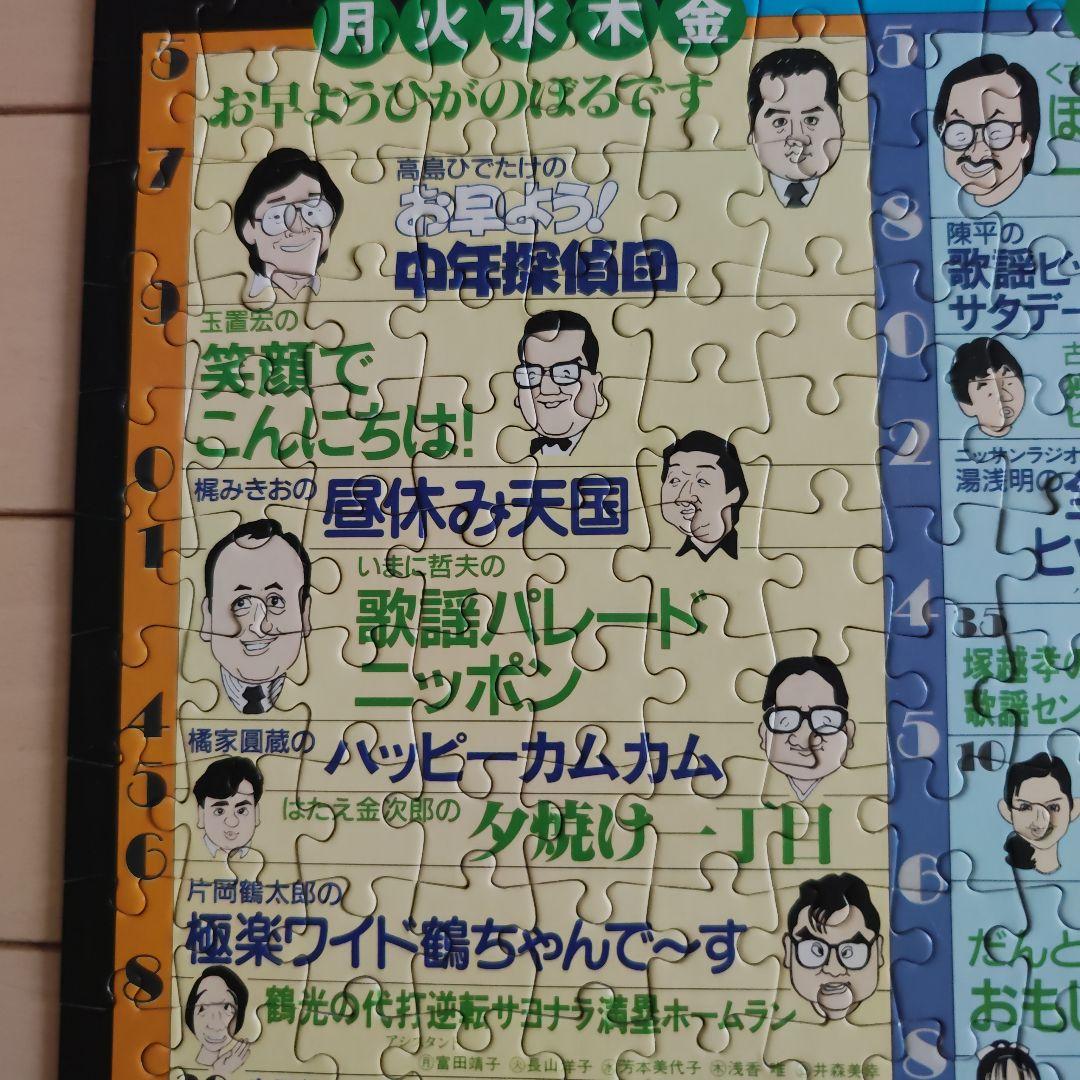 月火水木金
5
お早ようひがのぼるです
7
高島ひでたけの
お早よう!
中年探偵団
9
玉置宏の
笑顔で
こんにちは!
0
梶みきおの 昼休み天国
1
いまに哲夫の
歌謡パレード
ニッポン
4
橘家圓蔵の ハッピーカムカム
5
はたえ金次郎の 夕焼け一丁目
6
片岡鶴太郎の
極楽ワイド鶴ちゃんで〜す
8
鶴光の代打逆転サヨナラ満塁ホームラン
アシスタント
月富田靖子 火長山洋子 水芳本美代子 木浅香唯 井森美幸
5
8
陳平の
歌謡ビッ
サタデー
0
2
ニッサンラジオ
湯浅明の
ヒッ
4
35
塚越孝の
歌謡セン
5
10
6
だんと
おもし
8